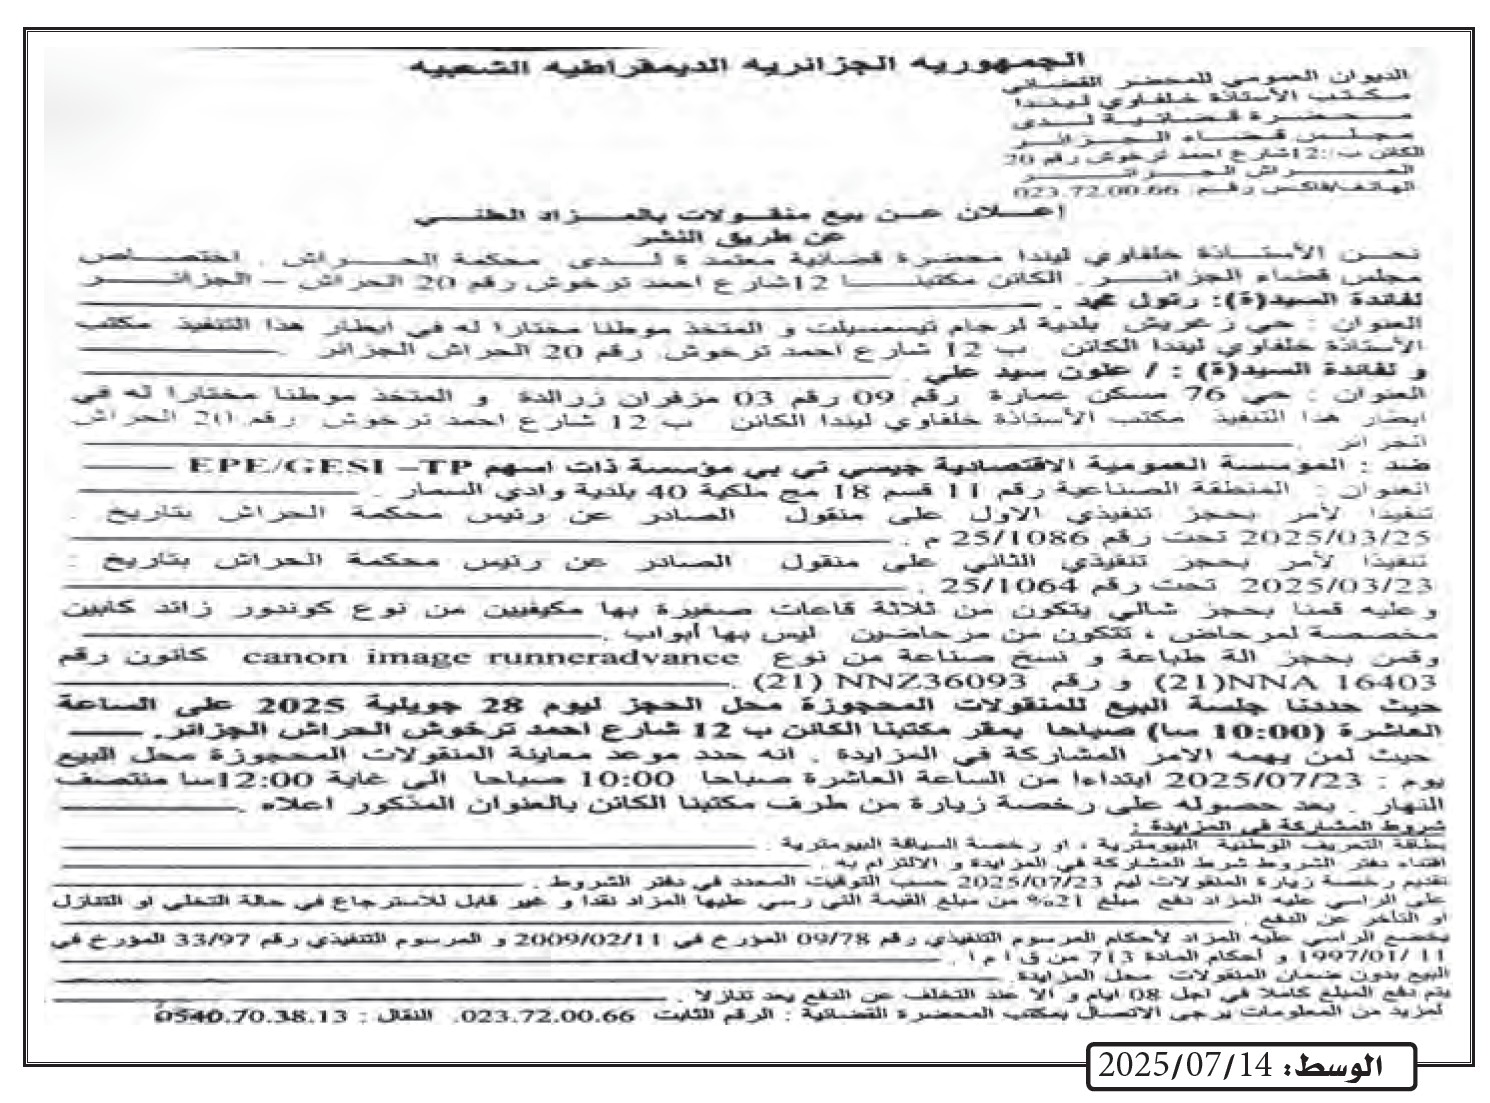 الجمهورية الجزائرية الديمقراطية الشعبية
الديوان العمومي للمحضر القضائي
مكتب الأستاذة خلفاوي ليندا
محضرة قضائية لدى
مجلس قضاء الجزائر
الكائن ب/:12شارع احمد ترخوش رقم 20
الحراش الجزائر
الهاتف/فاكس رقم: 023.72.00.66
إعلان عن بيع منقولات بالمزاد العلني
عن طريق النشر
نحن الأستاذة خلفاوي ليندا محضرة قضائية معتمدة لدى محكمة الحراش . اختصاص
مجلس قضاء الجزائر . الكائن مكتبنا 12شارع احمد ترخوش رقم 20 الحراش – الجزائر
لفائدة السيد(ة): رتول محمد .
العنوان : حي زعريش بلدية لرجام تيسمسيلت و المتخذ موطنا مختارا له في ابطار هذا التنفيذ مكتب
الأستاذة خلفاوي ليندا الكائن ب 12 شارع احمد ترخوش. رقم 20 الحراش الجزائر .
و لفائدة السيد(ة) : / علون سيد علي .
العنوان : حي 76 مسكن عمارة رقم 09 رقم 03 مزفران زرالدة و المتخذ موطنا مختارا له في
ابطار هذا التنفيذ مكتب الأستاذة خلفاوي ليندا الكائن ب 12 شارع احمد ترخوش رقم 20 الحراش
الجزائر .
ضد : الموسسة العمومية الاقتصادية جيسي تي بي مؤسسة ذات اسهم EPE/GESI –TP
العنوان : المنطقة الصناعية رقم 11 قسم 18 مج ملكية 40 بلدية وادي السمار .
تنفيذا لأمر بحجز تنفيذي الاول على منقول الصادر عن رئيس محكمة الحراش بتاريخ .
2025/03/25 تحت رقم 25/1086 م .
تنفيذا لأمر بحجز تنفيذي الثاني على منقول الصادر عن رئيس محكمة الحراش بتاريخ :
2025/03/23 تحت رقم 25/1064 .
وعليه قمنا بحجز شالي يتكون من ثلاثة قاعات صغيرة بها مكيفيين من نوع كوندور زائد كابين
مخصصة لمرحاض ، تتكون من مرحاضين ليس بها أبواب .
وقمن بحجز الة طباعة و نسخ صناعة من نوع canon image runneradvance كانون رقم
(21)NNA 16403 و رقم NNZ36093 (21) .
حيث حددنا جلسة البيع للمنقولات المحجوزة محل الحجز ليوم 28 جويلية 2025 على الساعة
العاشرة (10:00 سا) صباحا بمقر مكتبنا الكائن ب 12 شارع احمد ترخوش الحراش الجزائر.
حيث لمن يهمه الامر المشاركة في المزايدة . انه حدد موعد معاينة المنقولات المحجوزة محل البيع
يوم : 2025/07/23 ابتداءا من الساعة العاشرة صباحا 10:00 صباحا الى غاية 12:00سا منتصف
النهار . بعد حصوله على رخصة زيارة من طرف مكتبنا الكائن بالعنوان المذكور اعلاه .
شروط المشاركة في المزايدة :
بطاقة التعريف الوطنية البيومترية ، او رخصة السياقة البيومترية .
اقتناء دفتر الشروط شرط المشاركة في المزايدة و الالتزام به .
تقديم رخصة زيارة المنقولات ليم 2025/07/23 حسب التوقيت المحدد في دفتر الشروط .
على الراسي عليه المزاد دفع مبلغ 21% من مبلغ القيمة التي رسي عليها المزاد نقدا و غير قابل للاسترجاع في حالة التخلي او التنازل
او التاخر عن الدفع .
يخضع الراسي عليه المزاد لأحكام المرسوم التنفيذي رقم 09/78 المؤرخ في 2009/02/11 و المرسوم التنفيذي رقم 33/97 المؤرخ في
11 /1997/01 و أحكام المادة 713 من ق ا م ا .
البيع بدون ضمان المنقولات محل المزايدة.
يتم دفع المبلغ كاملا في اجل 08 ايام و الا عند التخلف عن الدفع يعد تنازلا .
لمزيد من المعلومات يرجى الاتصال بمكتب المحضرة القضائية : الرقم الثابت 023.72.00.66. النقال : 0540.70.38.13
الوسط: 2025/07/14